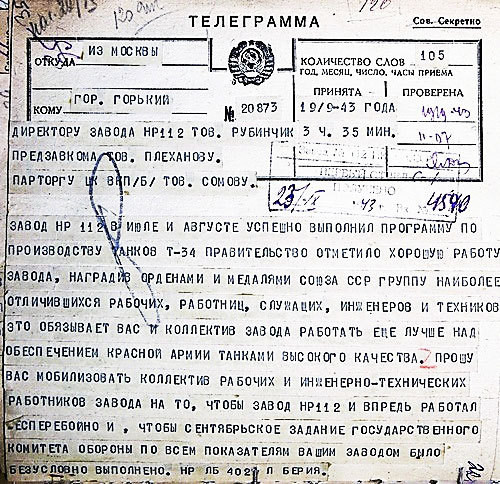 ТЕЛЕГРАММА
Сов. Секретно
ИЗ МОСКВЫ
ОТКУДА
КОЛИЧЕСТВО СЛОВ 105
ГОД, МЕСЯЦ, ЧИСЛО, ЧАСЫ ПРИЕМА
ПРИНЯТА - ПРОВЕРЕНА
ГОР. ГОРЬКИЙ
КОМУ
№ 20873
19/9-43 ГОДА
ДИРЕКТОРУ ЗАВОДА НР112 ТОВ. РУБИНЧИК 3 Ч. 35 МИН.
ПРЕДЗАВКОМА ТОВ. ПЛЕХАНОВУ.
ПАРТОРГУ ЦК ВКП/Б/ ТОВ. СОМОВУ.
4590
ЗАВОД НР 112 В ИЮЛЕ И АВГУСТЕ УСПЕШНО ВЫПОЛНИЛ ПРОГРАММУ ПО
ПРОИЗВОДСТВУ ТАНКОВ Т-34 ПРАВИТЕЛЬСТВО ОТМЕТИЛО ХОРОШУЮ РАБОТУ
ЗАВОДА, НАГРАДИВ ОРДЕНАМИ И МЕДАЛЯМИ СОЮЗА ССР ГРУППУ НАИБОЛЕЕ
ОТЛИЧИВШИХСЯ РАБОЧИХ, РАБОТНИЦ, СЛУЖАЩИХ, ИНЖЕНЕРОВ И ТЕХНИКОВ
ЭТО ОБЯЗЫВАЕТ ВАС И КОЛЛЕКТИВ ЗАВОДА РАБОТАТЬ ЕЩЕ ЛУЧШЕ НАД
ОБЕСПЕЧЕНИЕМ КРАСНОЙ АРМИИ ТАНКАМИ ВЫСОКОГО КАЧЕСТВА. ПРОШУ
ВАС МОБИЛИЗОВАТЬ КОЛЛЕКТИВ РАБОЧИХ И ИНЖЕНЕРНО-ТЕХНИЧЕСКИХ
РАБОТНИКОВ ЗАВОДА НА ТО, ЧТОБЫ ЗАВОД НР112 И ВПРЕДЬ РАБОТАЛ
БЕСПЕРЕБОЙНО И , ЧТОБЫ СЕНТЯБРЬСКОЕ ЗАДАНИЕ ГОСУДАРСТВЕННОГО
КОМИТЕТА ОБОРОНЫ ПО ВСЕМ ПОКАЗАТЕЛЯМ ВАШИМ ЗАВОДОМ БЫЛО
БЕЗУСЛОВНО ВЫПОЛНЕНО. НР ЛБ 4027 Л БЕРИЯ.